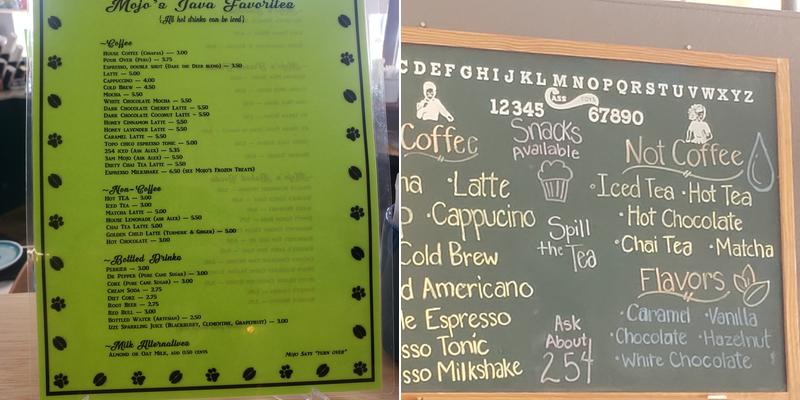 Mojo's Java Favorites
{All hot drinks can be iced}
~Coffee
House Coffee (Chiapas) — 3.00
Pour Over (Peru) — 3.75
Espresso, double shot (Dare the Deer blend) — 3.50
Latte — 5.00
Cappuccino — 4.00
Cold Brew — 4.50
Mocha — 5.50
White Chocolate Mocha — 5.50
Dark Chocolate Cherry Latte — 5.50
Dark Chocolate Coconut Latte — 5.50
Honey Cinnamon Latte — 5.50
Honey Lavender Latte — 5.50
Caramel Latte — 5.50
Topo Chico Espresso Tonic — 5.00
254 Iced (Ask Alex) — 5.35
Sam Mojo (Ask Alex) — 5.50
Dirty Chai Tea Latte — 5.50
Espresso Milkshake — 6.50 (see Mojo's Frozen Treats)
~Non-Coffee
Hot Tea — 3.00
Iced Tea — 3.00
Matcha Latte — 5.00
House Lemonade (Ask Alex) — 5.50
Chai Tea Latte 5.00
Golden Child Latte (Turmeric & Ginger) — 5.00
Hot Chocolate — 3.00
~Bottled Drinks
Perrier — 3.00
Dr Pepper (Pure Cane Sugar) — 3.00
Coke (Pure Cane Sugar) — 3.00
Cream Soda — 2.75
Diet Coke — 2.75
Root Beer — 2.75
Red Bull — 3.00
Bottled Water (Artesian) — 2.50
Izze Sparkling Juice (Blackberry, Clementine, Grapefruit) — 3.00
~Milk Alternatives
Almond or Oat Milk, add 0.50 cents
Mojo Says "turn over"
C D E F G H I J K L M N O P Q R S T U V W X Y Z
12345 Cass Toys 67890
Coffee
·Latte
·Cappucino
Cold Brew
Americano
Espresso
Tonic
Milkshake
Snacks
Available
Spill
the Tea
Ask
About
254
Not Coffee
·Iced Tea ·Hot Tea
·Hot Chocolate
·Chai Tea ·Matcha
Flavors
·Caramel ·Vanilla
·Chocolate ·Hazelnut
·White Chocolate